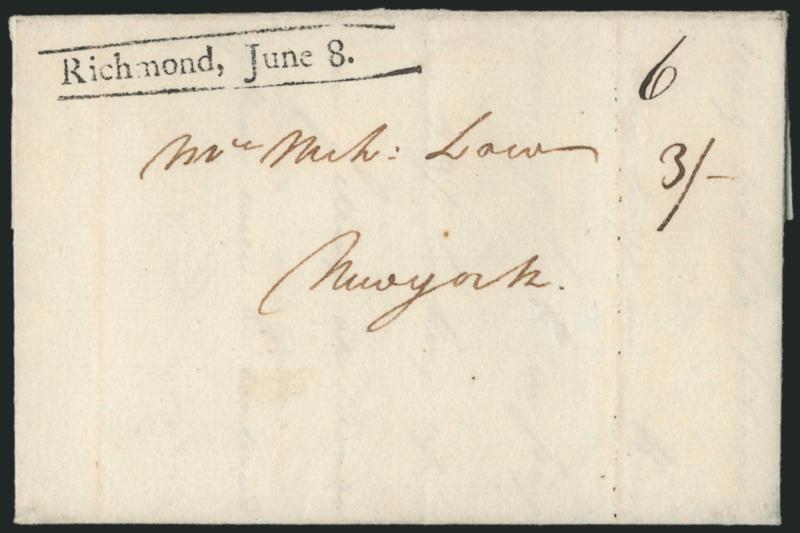 Richmond, June 8.
6
Mr Nich: Low
3/-
Newyork.